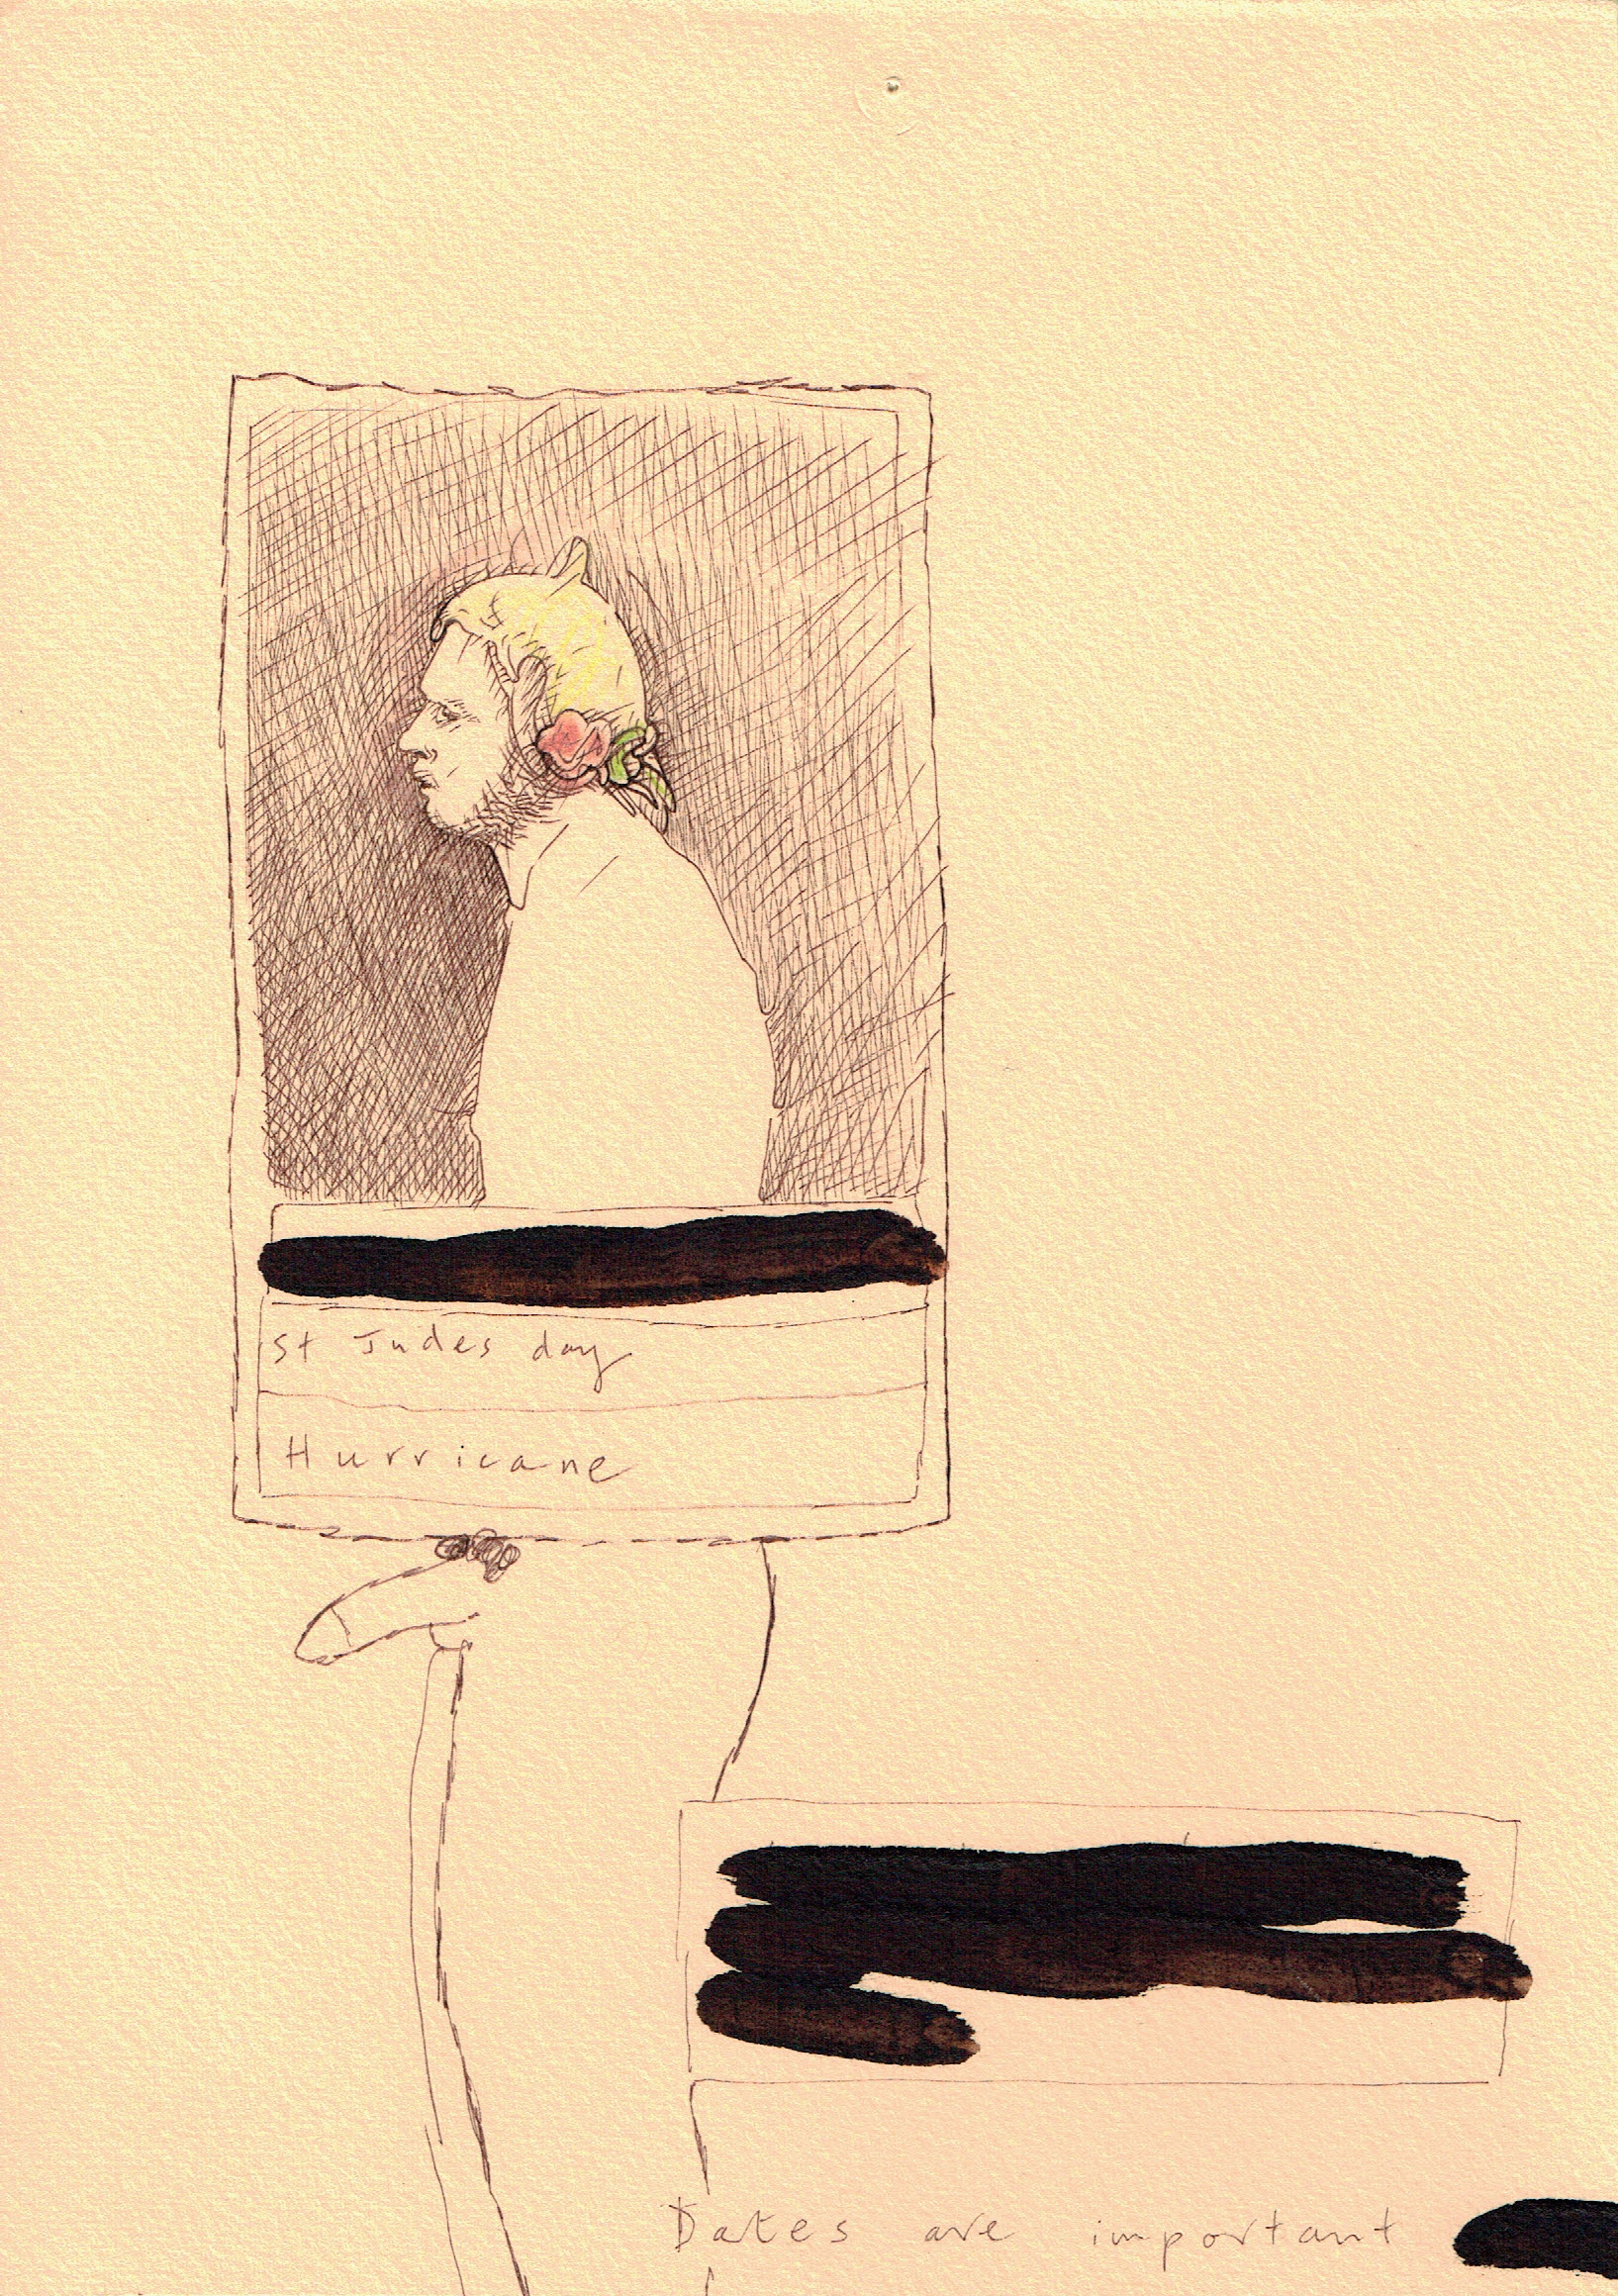 St Judes day
Hurricane
Dates are important